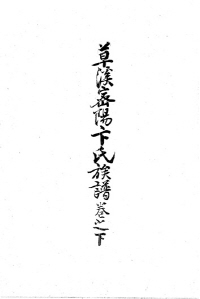 草溪密陽卞氏族譜卷之下